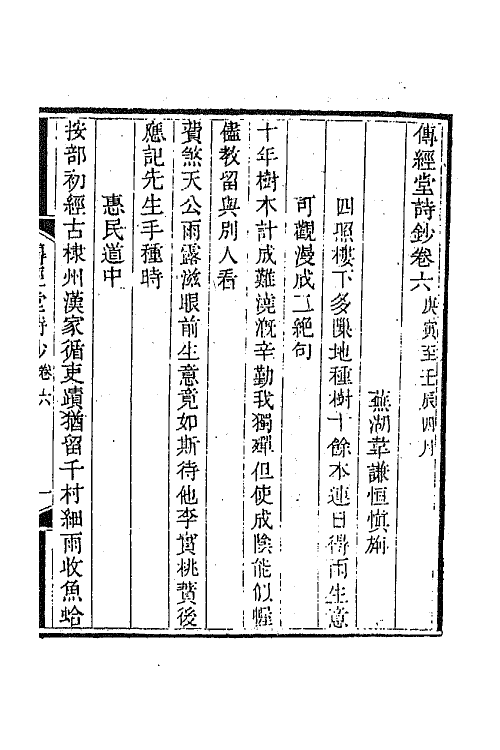 傳經堂詩鈔卷六庚寅至壬辰四月
蕪湖韋謙恒慎旃
四照樓下多隙地種樹十餘本連日得雨生意
可觀漫成二絶句
十年樹木計成難澆溉辛勤我獨殫但使成陰能似幄
儘教留與別人看
費煞天公雨露滋眼前生意竟如斯待他李實桃蕡後
應記先生手種時
惠民道中
按部初經古棣州漢家循吏蹟猶留千村細雨收魚蛤
傳經堂詩鈔卷六
一